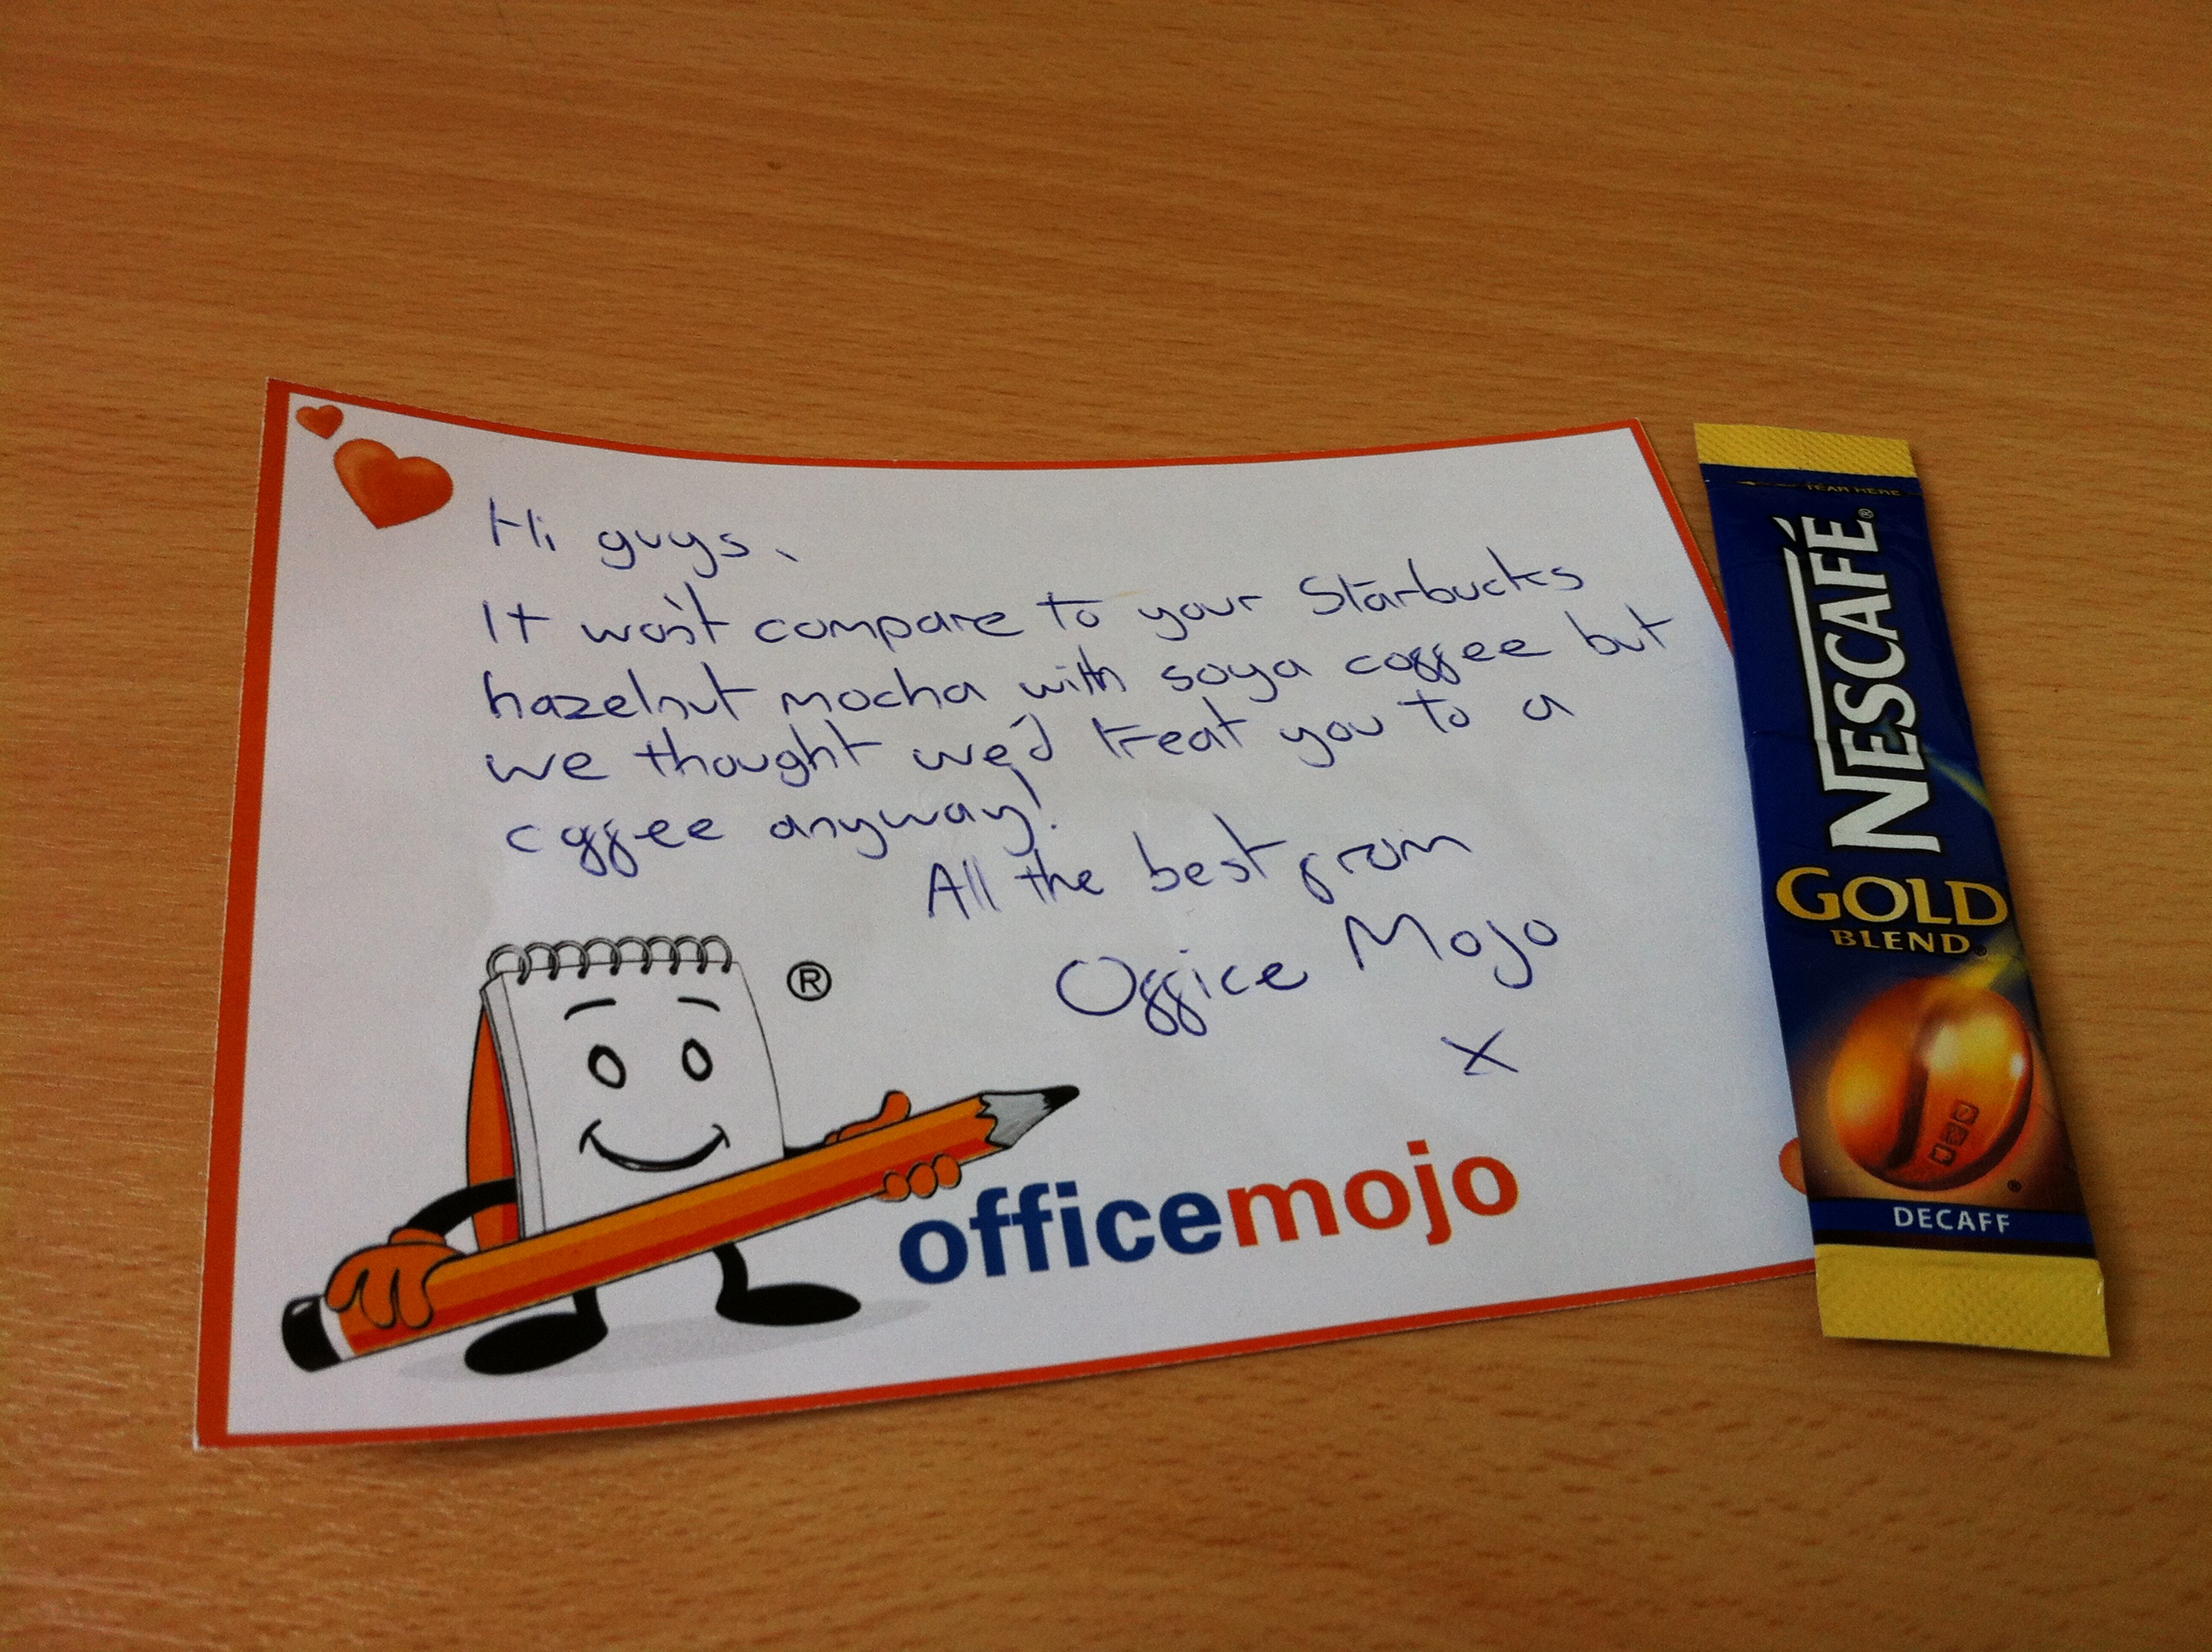 Hi guys,
It won't compare to your Starbucks
hazelnut mocha with soya coffee but
we thought we'd treat you to a
coffee anyway!
All the best from
Office Mojo
x
®
officemojo
TEAR HERE
NESCAFÉ®
GOLD
BLEND®
®
DECAFF